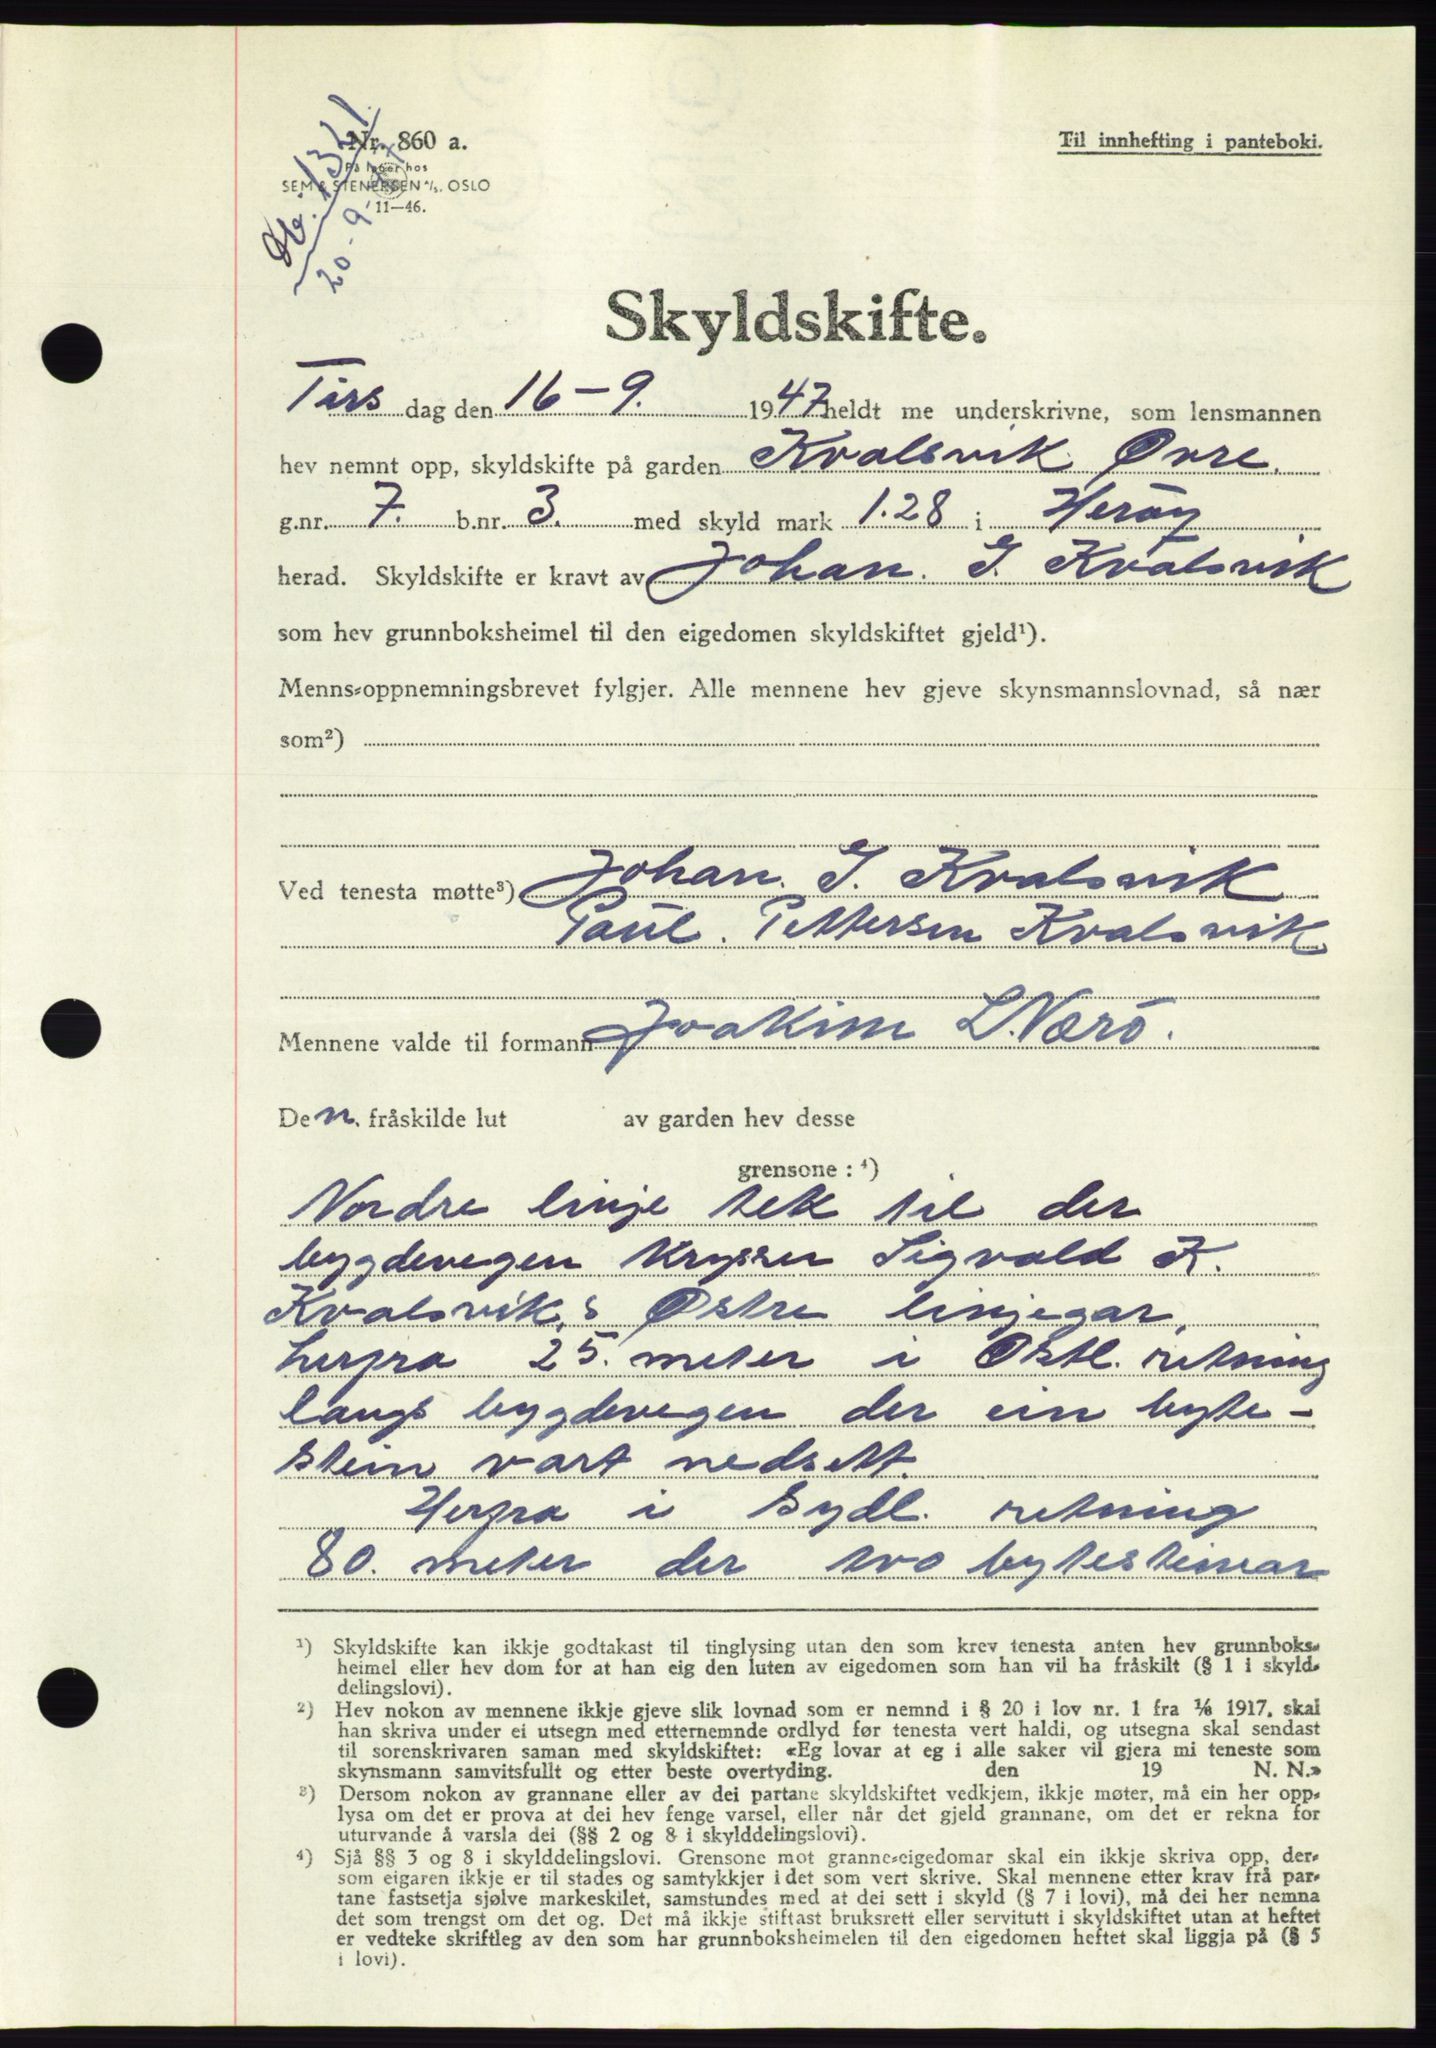 Nr. 860 a.
Til innhefting i panteboki.
På lager hos
SEM & STENERSEN A/S, OSLO
11—46.
1321.
20-9-47
Skyldskifte.
Tirs dag den 16-9. 1947 heldt me underskrivne, som lensmannen
hev nemnt opp, skyldskifte på garden Kvalsvik Øvre.
g.nr. 7. b.nr. 3. med skyld mark 1.28 i Herøy
herad. Skyldskifte er kravt av Johan. G. Kvalsvik
som hev grunnboksheimel til den eigedomen skyldskiftet gjeld¹).
Menns-oppnemningsbrevet fylgjer. Alle mennene hev gjeve skynsmannslovnad, så nær
som²)
Ved tenesta møtte³) Johan. G. Kvalsvik
Paul. Pettersen Kvalsvik
Mennene valde til formann Joakim L. Nærö.
Den. fråskilde lut av garden hev desse
grensone: ⁴)
Nordre linje tek til der
bygdevegen krysser Sigvald K.
Kvalsvik,s Østre linjegar,
herfra 25. meter i Østl. retning
langs bygdevegen der ein byte-
stein vart nedsett.
Herfra i sydl. retning
80. meter der tvo bytesteinar
¹) Skyldskifte kan ikkje godtakast til tinglysing utan den som krev tenesta anten hev grunnboks-
heimel eller hev dom for at han eig den luten av eigedomen som han vil ha fråskilt (§ 1 i skyld-
delingslovi).
²) Hev nokon av mennene ikkje gjeve slik lovnad som er nemnd i § 20 i lov nr. 1 fra 1/6 1917, skal
han skriva under ei utsegn med etternemnde ordlyd før tenesta vert haldi, og utsegna skal sendast
til sorenskrivaren saman med skyldskiftet: «Eg lovar at eg i alle saker vil gjera mi teneste som
skynsmann samvitsfullt og etter beste overtyding. den 19 N. N.»
³) Dersom nokon av grannane eller av dei partane skyldskiftet vedkjem, ikkje møter, må ein her opp-
lysa om det er prova at dei hev fenge varsel, eller når det gjeld grannane, om det er rekna for
uturvande å varsla dei (§§ 2 og 8 i skylddelingslovi).
⁴) Sjå §§ 3 og 8 i skylddelingslovi. Grensone mot granne-eigedomar skal ein ikkje skriva opp, der-
som eigaren ikkje er til stades og samtykkjer i det som vert skrive. Skal mennene etter krav frå par-
tane fastsetja sjølve markeskilet, samstundes med at dei sett i skyld (§ 7 i lovi), må dei her nemna
det som trengst om det og. Det må ikkje stiftast bruksrett eller servitutt i skyldskiftet utan at heftet
er vedteke skriftleg av den som har grunnboksheimelen til den eigedomen heftet skal liggja på (§ 5
i lovi).